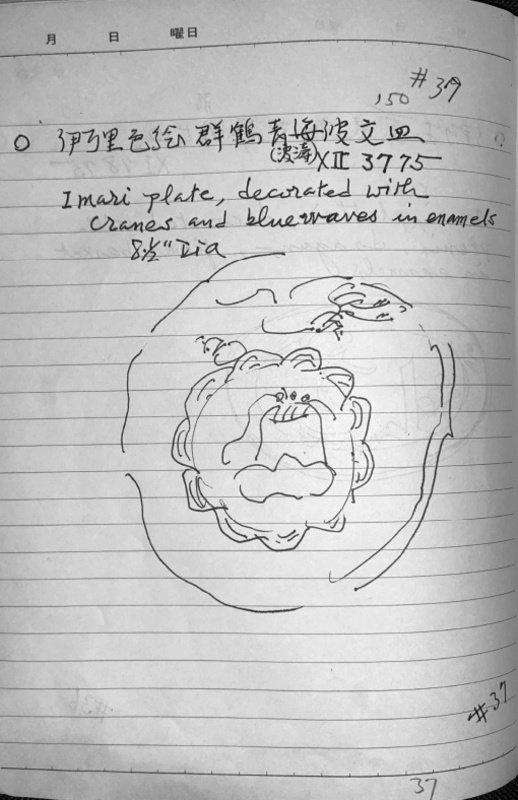 月 日 曜日
#37
150
伊万里色絵群鶴青海波文皿
(波濤) XII 3775
Imari plate, decorated with
cranes and bluewaves in enamels
8.½" Dia
#37
37